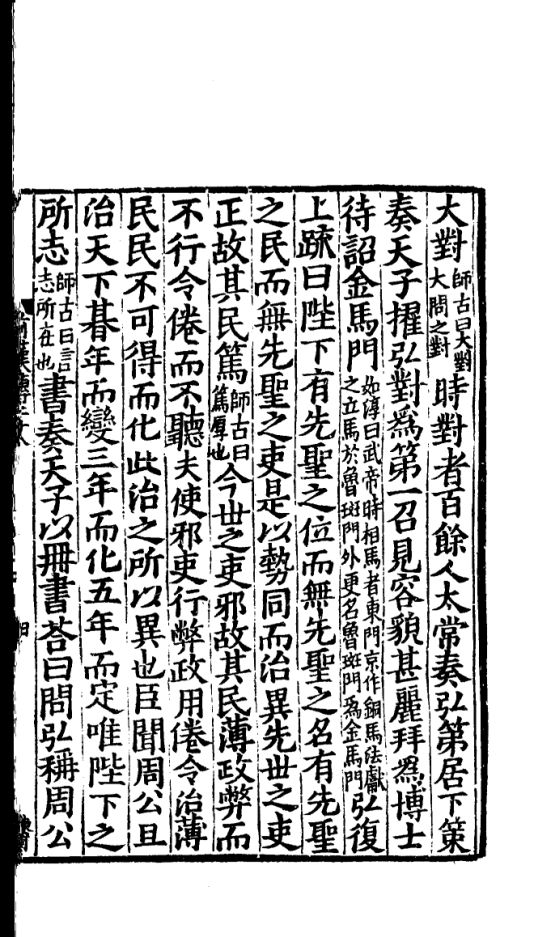 大對師古曰大對大問之對時對者百餘人太常奏弘第居下策
奏天子擢弘對爲第一召見容貌甚麗拜爲博士
待詔金馬門如淳曰武帝時相馬者東門京作銅馬法獻之立馬於魯班門外更名魯班門爲金馬門弘復
上疏曰陛下有先聖之位而無先聖之名有先聖
之民而無先聖之吏是以勢同而治異先世之吏
正故其民篤師古曰篤厚也今世之吏邪故其民薄政弊而
不行令倦而不聽夫使邪吏行弊政用倦令治薄
民民不可得而化此治之所以異也臣聞周公旦
治天下朞年而變三年而化五年而定唯陛下之
所志師古曰言志所在也書奏天子以冊書荅曰問弘稱周公